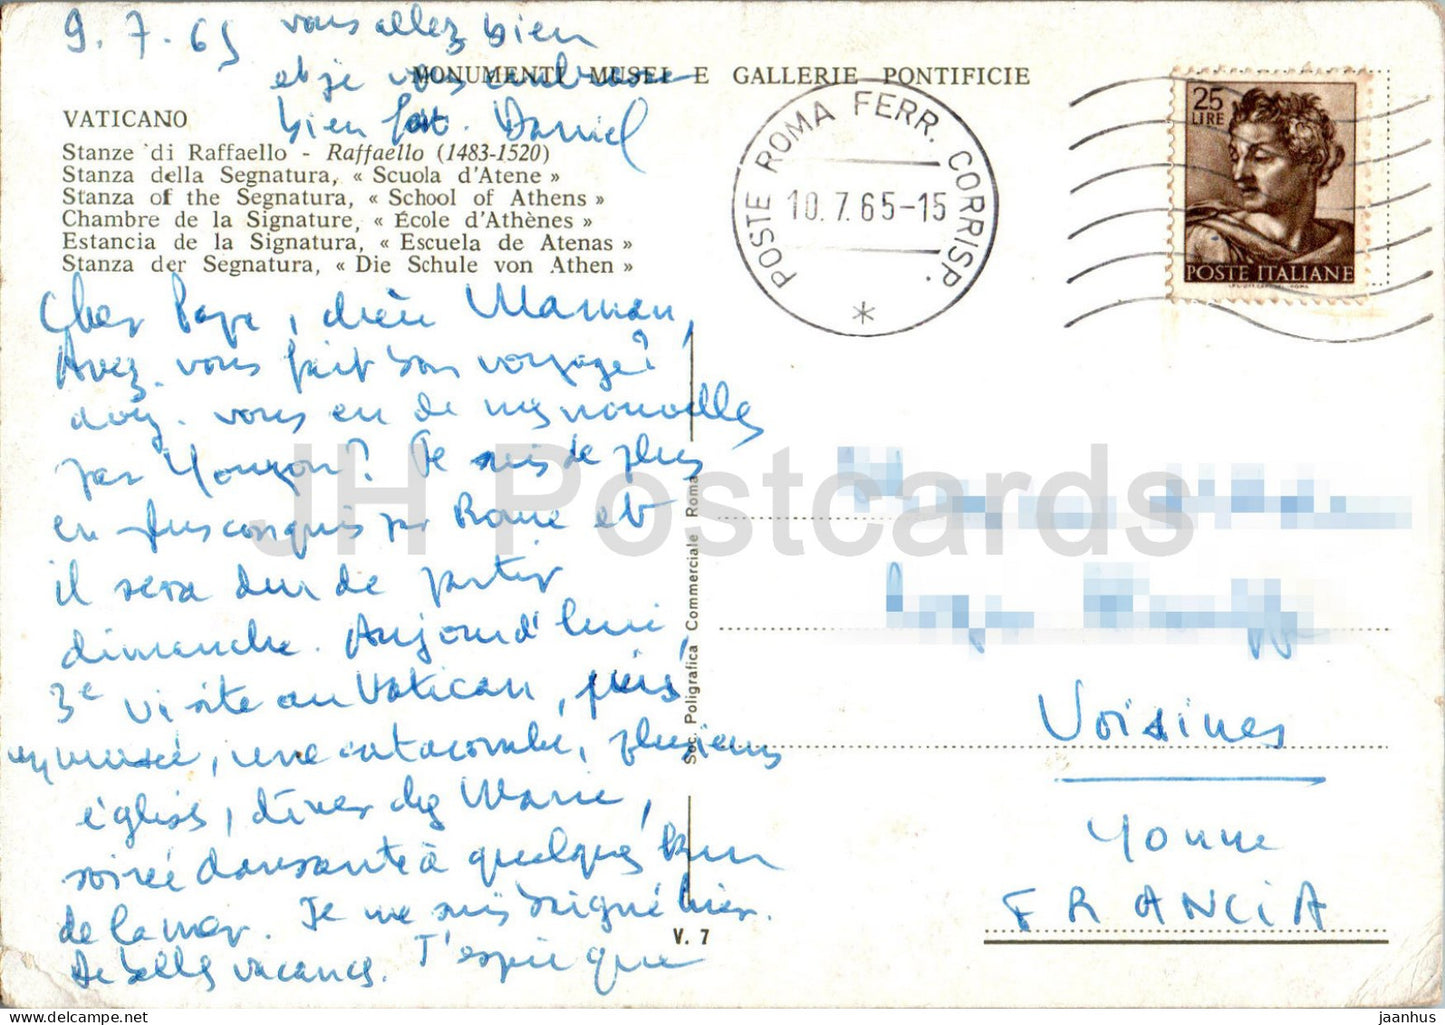 9.7.65
vous allez bien
et je vous embrasse
bien fort. Daniel
MONUMENTI MUSEI E GALLERIE PONTIFICIE
VATICANO
Stanze di Raffaello - Raffaello (1483-1520)
Stanza della Segnatura, « Scuola d'Atene »
Stanza of the Segnatura, « School of Athens »
Chambre de la Signature, « École d'Athènes »
Estancia de la Signatura, « Escuela de Atenas »
Stanza der Segnatura, « Die Schule von Athen »
POSTE ROMA FERR. CORRISP.
10.7.65-15
25
LIRE
POSTE ITALIANE
Cher Papa, chère Maman,
Avez-vous fait bon voyage?
avez-vous eu de mes nouvelles
par ? Je suis de plus
en plus conquis par Rome et
il sera dur de partir
dimanche. Aujourd'hui,
3e visite au Vatican, puis
un musée, une catacombe, plusieurs
églises, dîner chez Marie,
soirée dansante à quelques km
de la mer. Je me suis baigné hier.
De belles vacances. J'espère que
Soc. Poligrafica Commerciale - Roma
V. 7
Voisines
Yonne
FRANCIA
JH Postcards
jaanhus